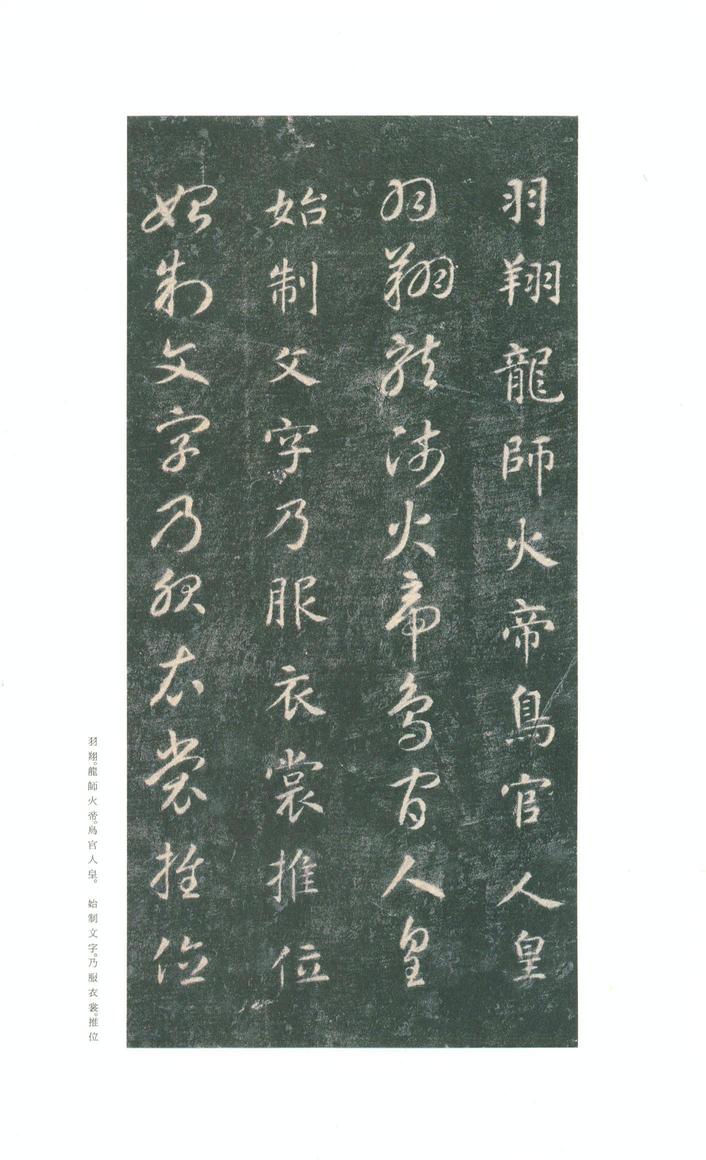 羽翔龍師火帝鳥官人皇
羽翔龍師火帝鳥官人皇
始制文字乃服衣裳推位
始制文字乃服衣裳推位
羽翔。龍師火帝。鳥官人皇。始制文字。乃服衣裳。推位